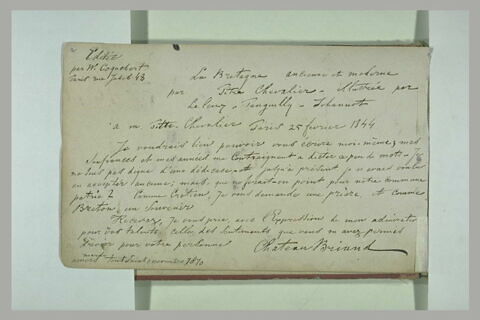 Editée
par W. Coquebert
Paris rue Jacob 48
La Bretagne ancienne et moderne
par Pitre Chevalier - Illustrée par
Leleux - Penguilly - Johannot
à M. Pitre-Chevalier Paris 25 février 1844
Je voudrais bien pouvoir vous écrire moi-même; mes
souffrances et mes années me contraignent à dicter ce peu de mots. Je
ne suis pas digne d'une dédicace et jusqu'à présent je n'avais voulu
en accepter aucune; mais que ne ferait-on point pour notre commune
patrie? Comme Chrétien, je vous demande une prière, et comme
Breton, un souvenir
Recevez, je vous prie, avec l'Expression de mon admiration
pour vos talents, celle des sentiments que vous m'avez permis
d'avoir pour votre personne
Chateau Briand
1870